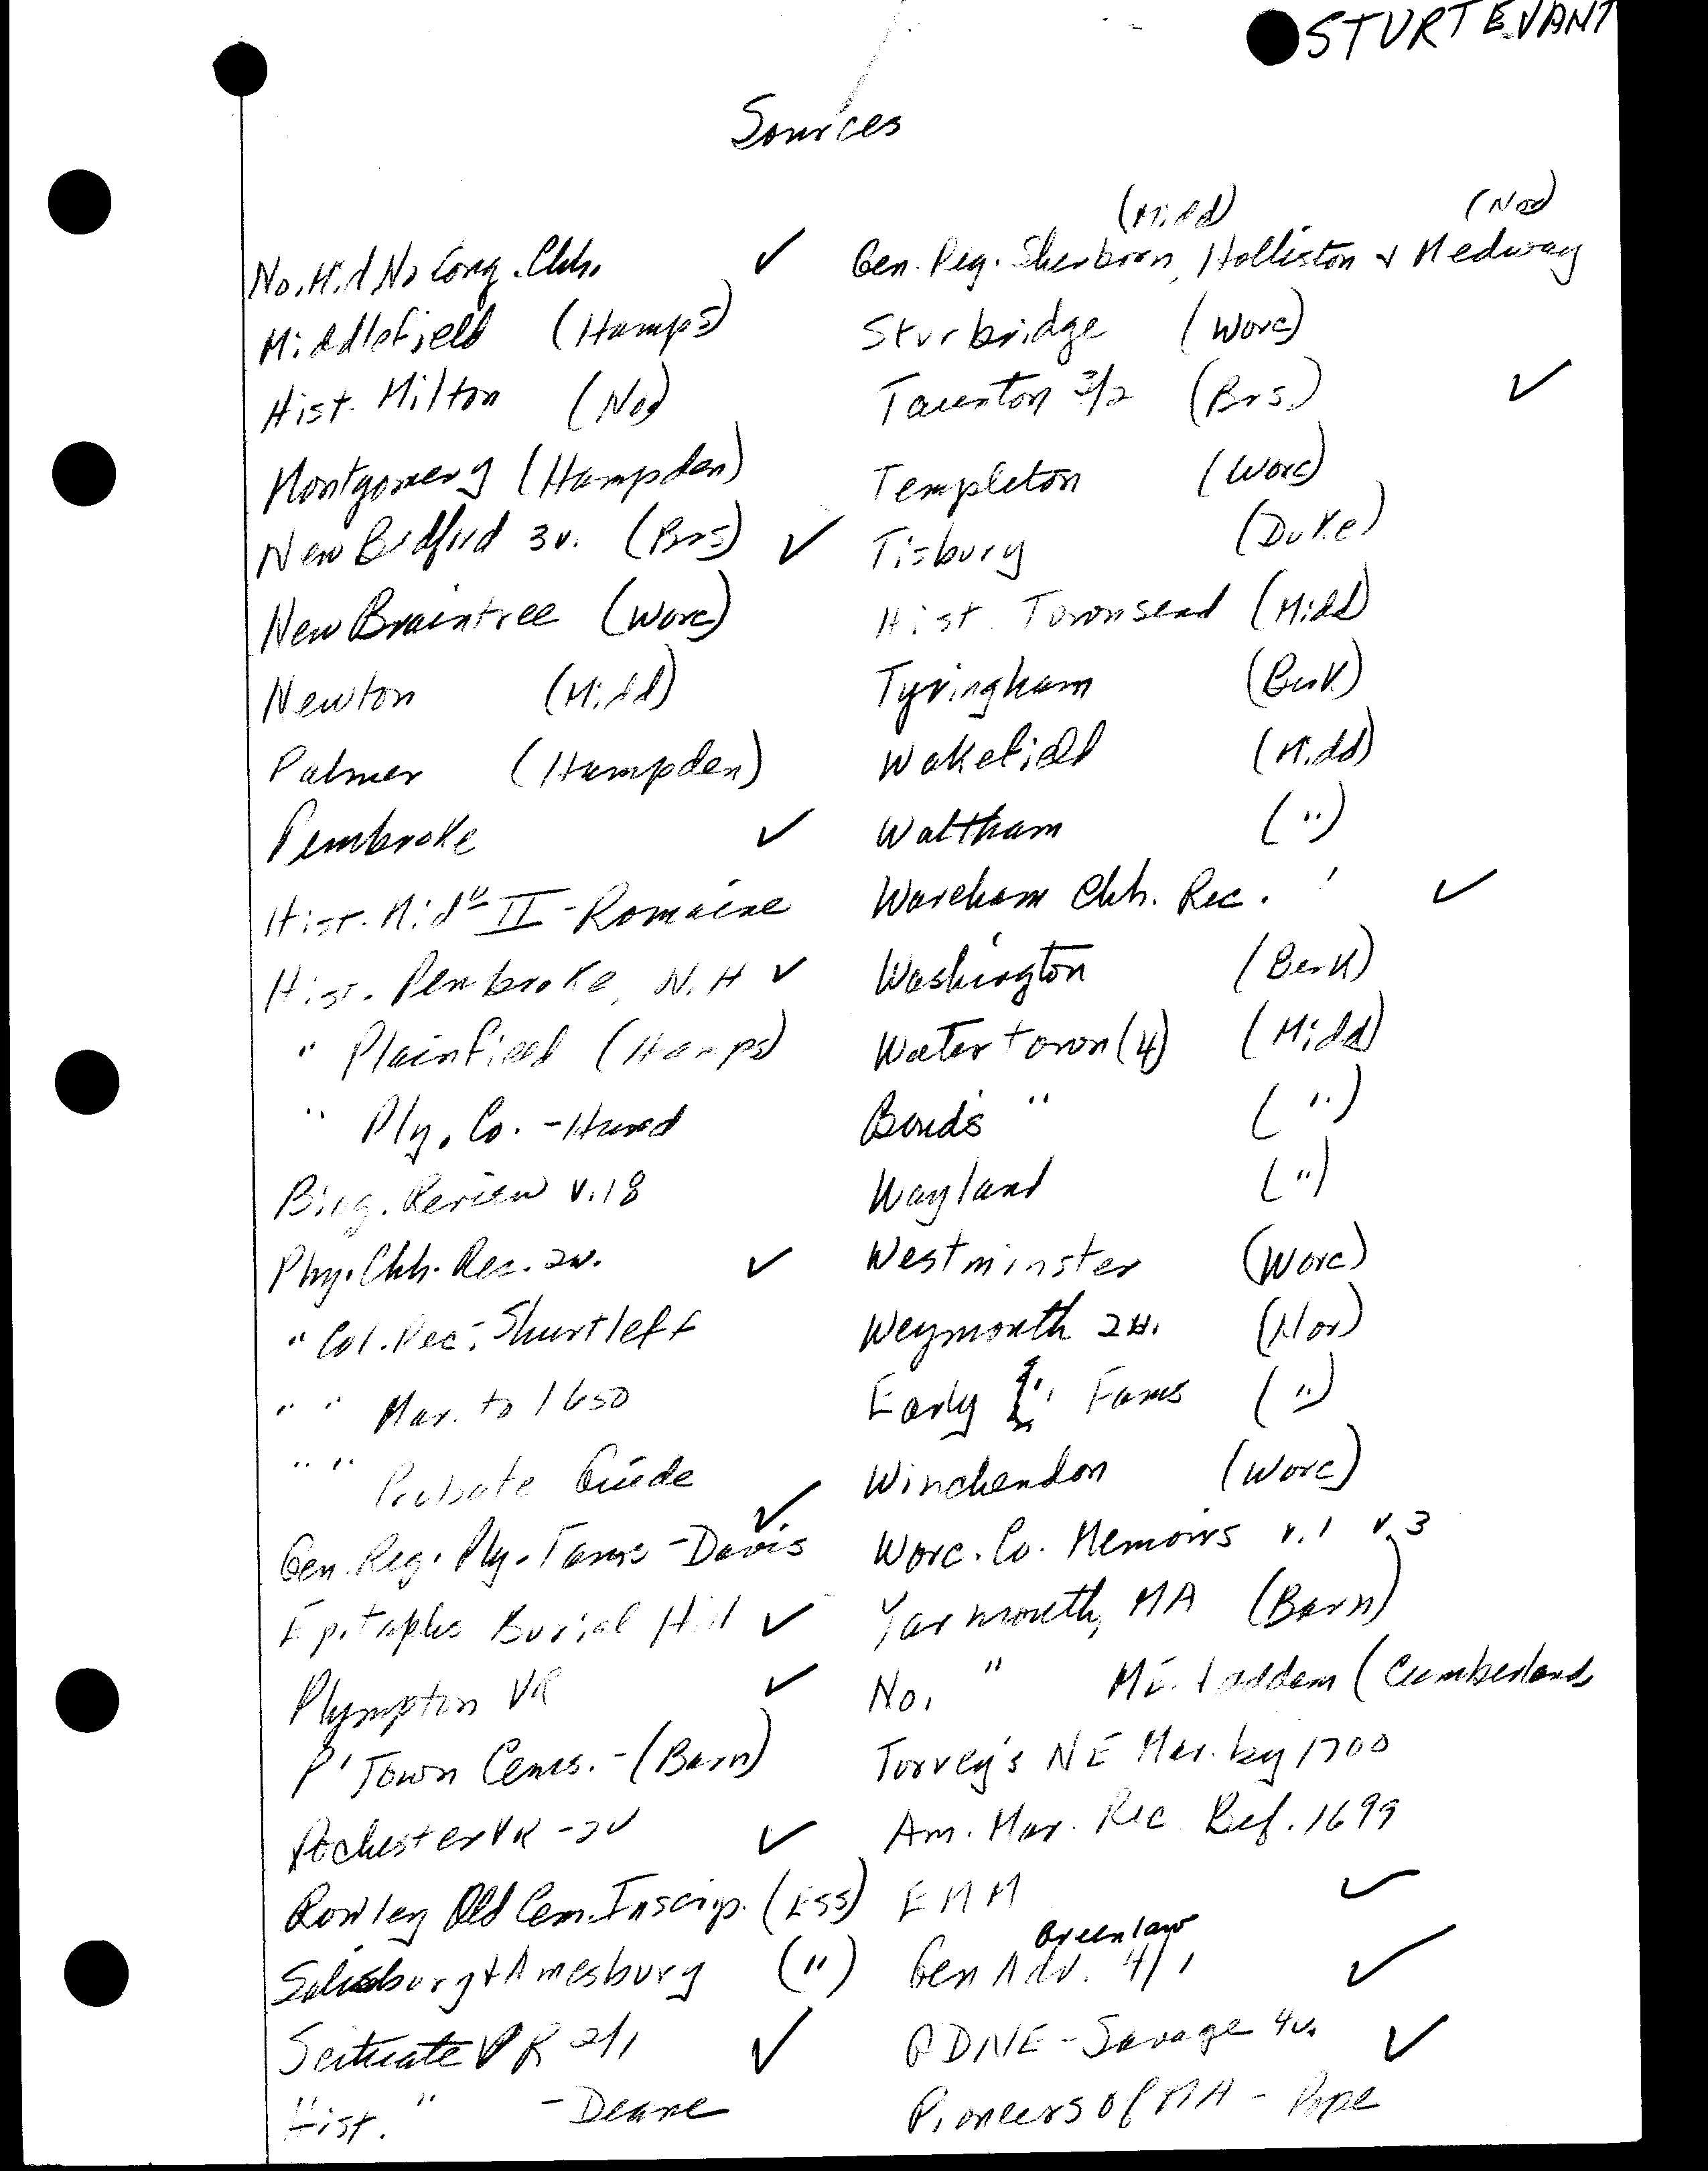 STURTEVANT
Sources
No. Mid No Cong. Chh. ✓
Middlefield (Hamps)
Hist. Milton (Nor)
Montgomery (Hampden)
New Bedford 3v. (Brs) ✓
New Braintree (Worc)
Newton (Midd)
Palmer (Hampden)
Pembroke ✓
Hist. Mid II - Romaine
Hist. Pembroke, N.H ✓
" Plainfield (Hamps)
" Ply. Co. - Hurd
Biog. Review v.18
Ply. Chh. Rec. 2v. ✓
" Col. Rec: Shurtleff
" " Mar. to 1650
" " Probate Guide
Gen. Reg. Ply. Fams - Davis ✓
Epitaphs Burial Hill ✓
Plympton VR ✓
P'Town Cems. - (Barn)
Rochester VR - 2v ✓
Rowley Old Cem. Inscrip. (Ess)
Salisbury & Amesbury (")
Scituate VR 2/1 ✓
Hist. " - Deane
(Midd) (Nor)
Gen. Reg. Sherborn, Holliston & Medway
Sturbridge (Worc)
Taunton 3/2 (Brs.) ✓
Templeton (Worc)
Tisbury (Duke)
Hist. Townsend (Midd)
Tyringham (Berk)
Wakefield (Midd)
Waltham (")
Wareham Chh. Rec. ✓
Washington (Berk)
Watertown (4) (Midd)
Bond's " (")
Wayland (")
Westminster (Worc)
Weymouth 2v. (Nor)
Early " Fams (")
Winchendon (Worc)
Worc. Co. Memoirs v.1 v.3
Yarmouth, MA (Barn)
No. " ME. (Cumberland
Torrey's NE Mar. by 1700
Am. Mar. Rec. Bef. 1699
EMM ✓
Greenlaw
Gen Adv. 4/1 ✓
GDNE - Savage 4v. ✓
Pioneers of MA - Pope